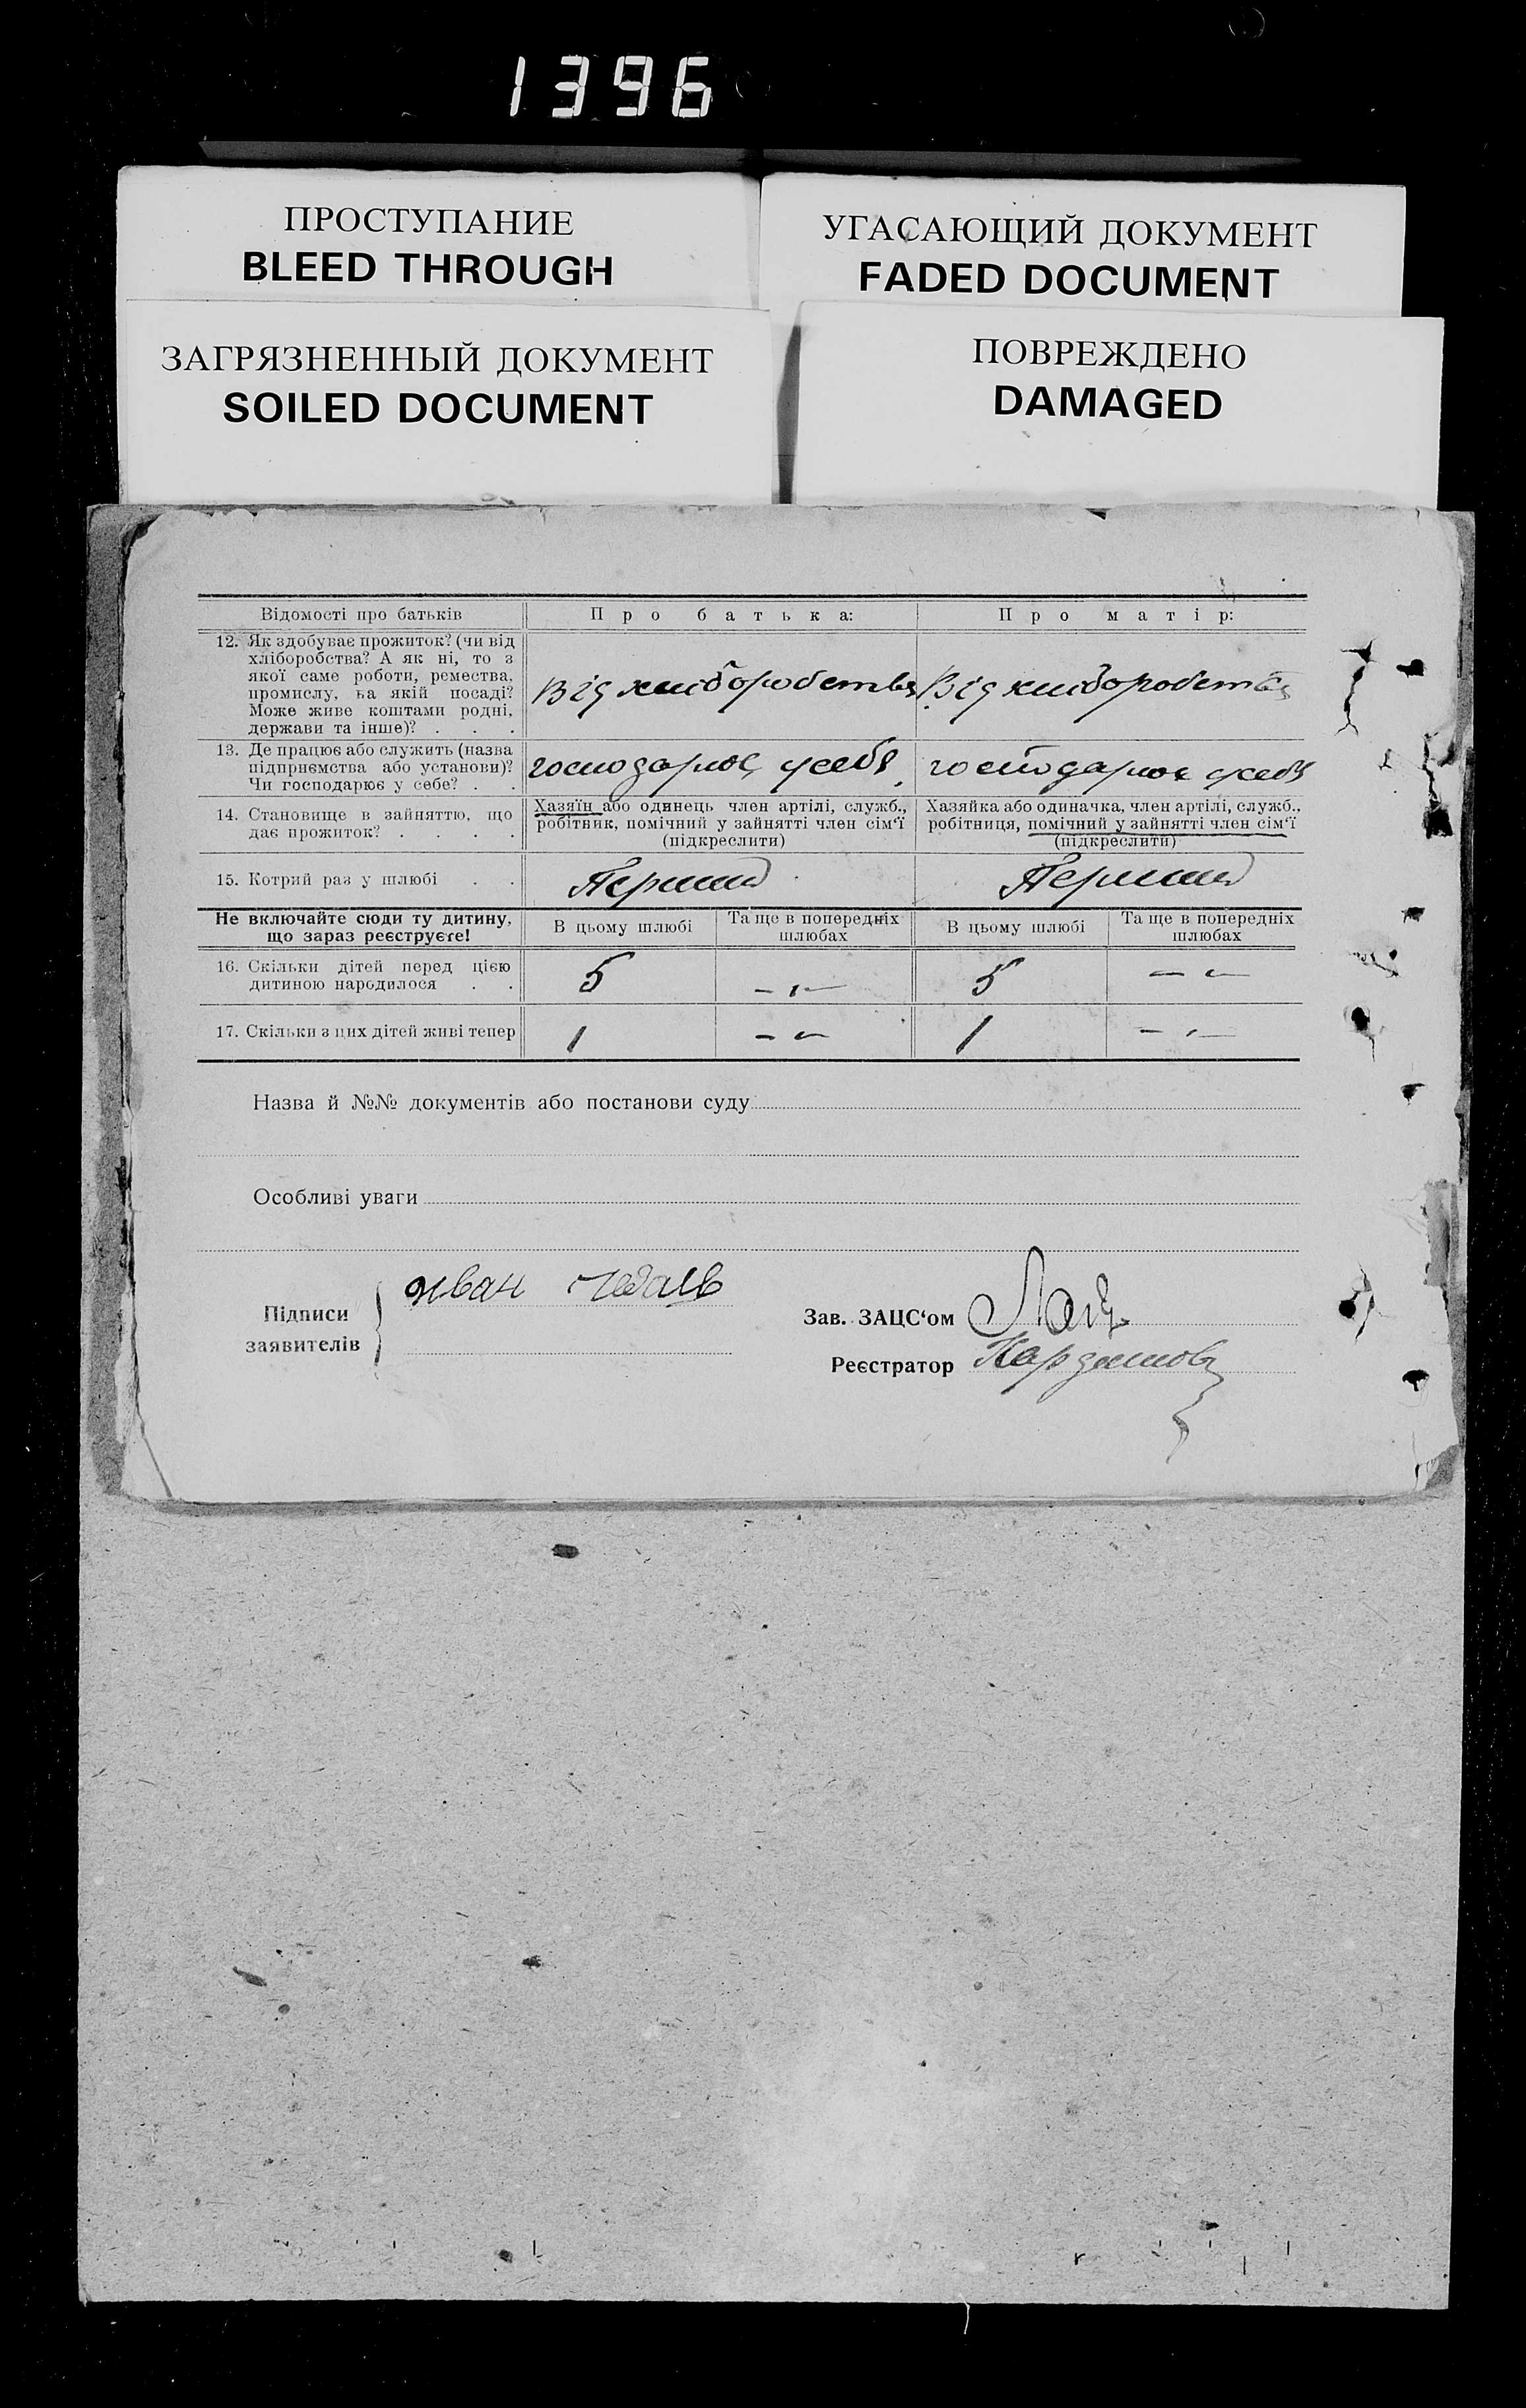 1396
ПРОСТУПАНИЕ
BLEED THROUGH
УГАСАЮЩИЙ ДОКУМЕНТ
FADED DOCUMENT
ЗАГРЯЗНЕННЫЙ ДОКУМЕНТ
SOILED DOCUMENT
ПОВРЕЖДЕНО
DAMAGED
Відомості про батьків
Про батька:
Про матір:
12. Як здобуває прожиток? (чи від
хліборобства? А як ні, то з
якої саме роботи, ремества,
промислу, на якій посаді?
Може живе коштами родні,
держави та інше)? . . .
Від хліборобства
Від хліборобства
13. Де працює або служить (назва
підприємства або установи)?
Чи господарює у себе? . .
господарює у себя
господарює у себя
14. Становище в зайняттю, що
дає прожиток? . . . .
Хазяїн або одинець член артілі, служб.,
робітник, помічний у зайнятті член сім'ї
(підкреслити)
Хазяйка або одиначка, член артілі, служб.,
робітниця, помічний у зайнятті член сім'ї
(підкреслити)
15. Котрий раз у шлюбі . .
Перший
Перший
Не включайте сюди ту дитину,
що зараз реєструєте!
В цьому шлюбі
Та ще в попередніх
шлюбах
В цьому шлюбі
Та ще в попередніх
шлюбах
16. Скільки дітей перед цією
дитиною народилося . .
5
— „ —
5
— „ —
17. Скільки з цих дітей живі тепер
1
— „ —
1
— „ —
Назва й №№ документів або постанови суду
Особливі уваги
Підписи
заявителів
Иван
Зав. ЗАЦС'ом
Реєстратор